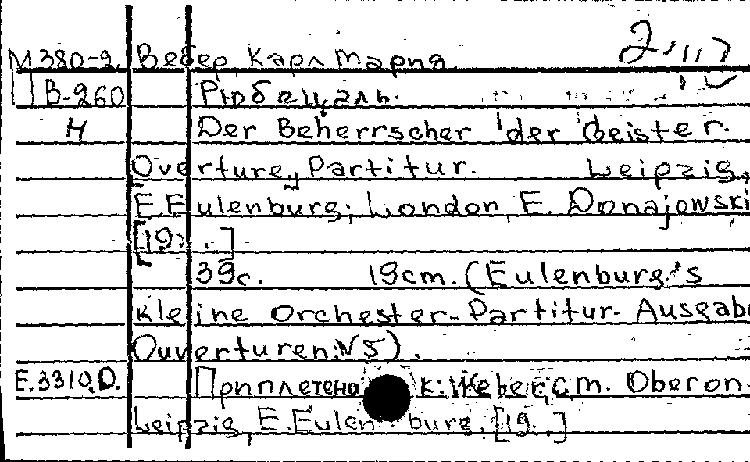 М380-2. Вебер, Карл Мария.
В-260 Рюбецаль.
Н Der Beherrscher der Geister.
Overture, Partitur. Leipzig,
E. Eulenburg; London, E. Donajowski
[19 . .]
39с. 19cm. (Eulenburg's
kleine Orchester-Partitur-Ausgabe
Ouverturen: N5).
E.3310.D. Приплетена к: Weber C.m. Oberon.
Leipzig, E. Eulenburg. [19 . ]